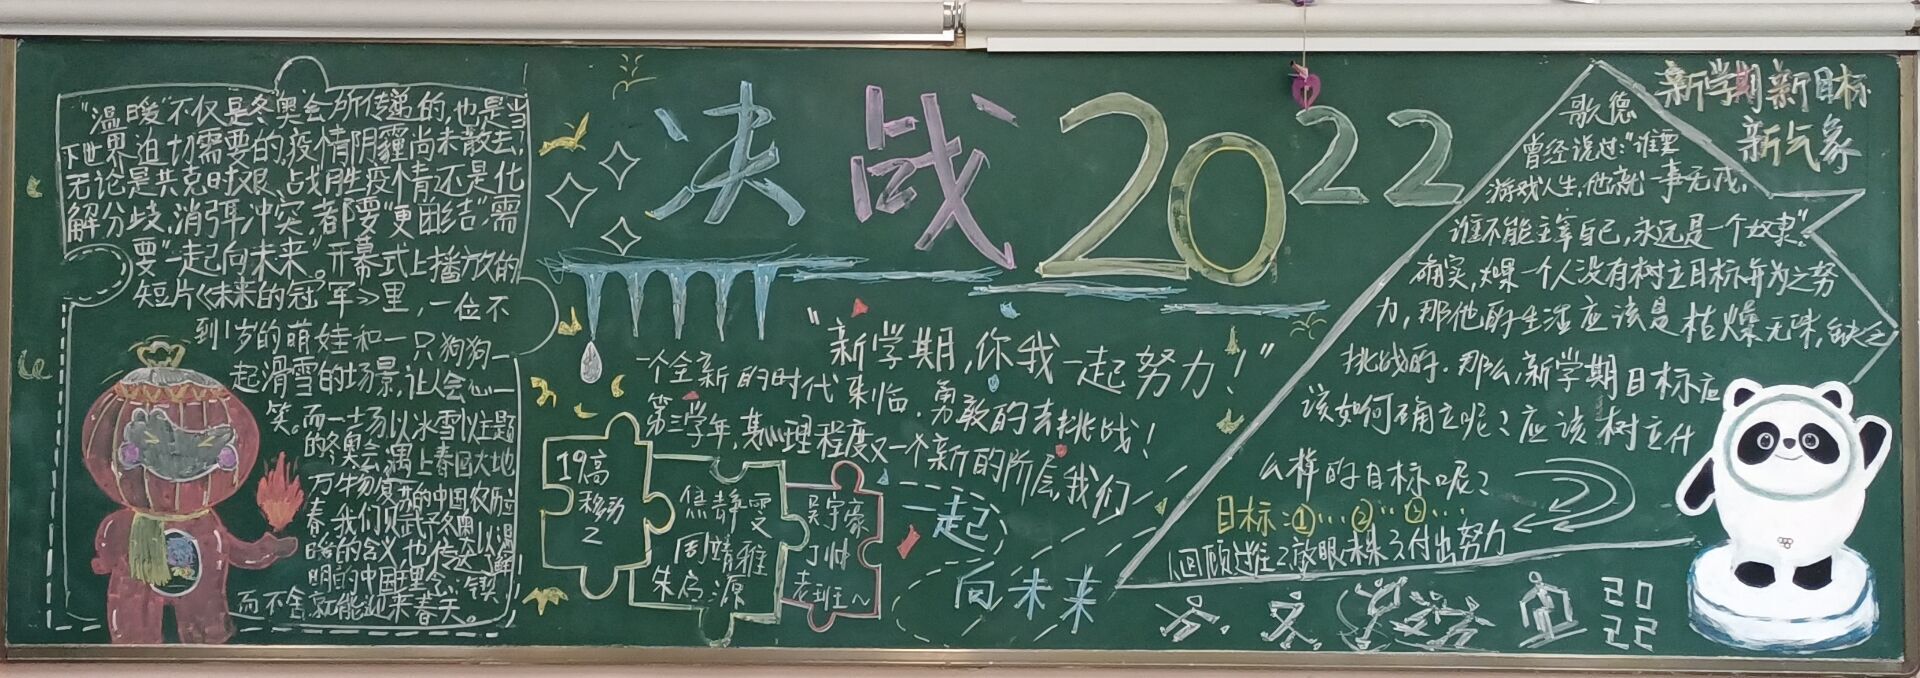 决战2022
"温暖"不仅是冬奥会所传递的,也是当
下世界迫切需要的,疫情阴霾尚未散去,
无论是共克时艰、战胜疫情还是化
解分歧,消弭冲突,都要"更团结"需
要"一起向未来"。开幕式上播放的
短片《未来的冠军》里,一位不
到1岁的萌娃和一只狗狗一
起滑雪的场景,让人会心一
笑。而一场以冰雪为主题
的冬奥会,遇上春回大地
万物复苏的中国农历
春
暖的含义也传达
明白的中国理念:锲
而不舍,就能迎来春天。
"新学期,你我一起努力!"
一个全新的时代来临,勇敢的去挑战!
第三学年,其心理程度又一个新的阶层,我们
一起
向未来
19高
移动
2
焦静雯
周婧雅
朱启源
吴宇豪
丁帅
老班~
新学期新目标
新气象
歌德
曾经说过:"谁要
游戏人生,他就一事无成,
谁不能主宰自己,永远是一个奴隶"。
确实,如果一个人没有树立目标并为之努
力,那他的生活应该是枯燥无味,缺乏
挑战的.那么,新学期目标应
该如何确立呢?应该树立什
么样的目标呢?
目标:①…②…③…
1.回顾过往2.放眼未来3.付出努力
20
22